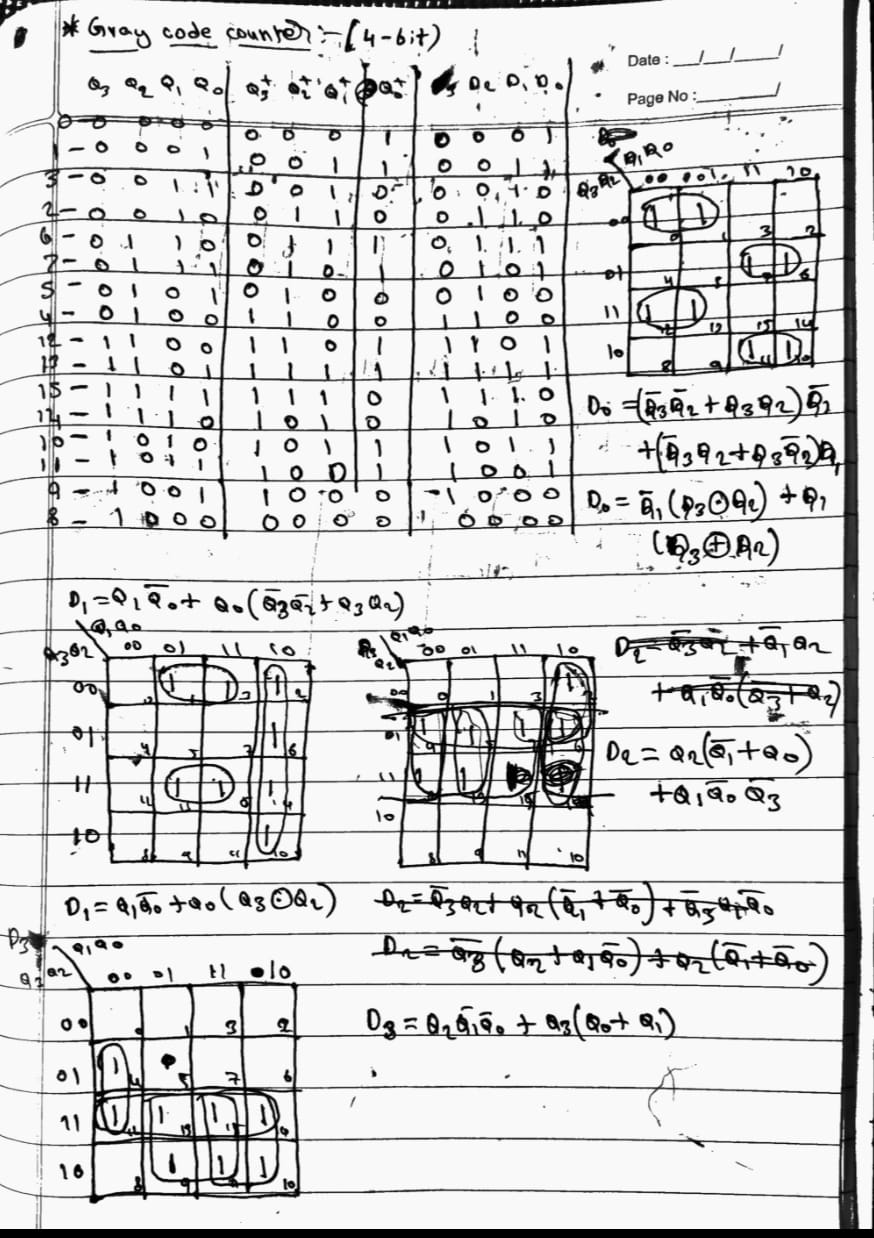 * Gray code counter :- (4-bit)
Date : __/__/__
Page No :
Q3 Q2 Q1 Q0 Q3+ Q2+ Q1+ Q0+ D2 D1 D0
0 0 0 0 0 0 0 0 1 0 0 0 1
1 - 0 0 0 1 0 0 1 1 0 0 1 1
3 - 0 0 1 1 0 0 1 0 0 0 1 0
2 - 0 0 1 0 0 1 1 0 0 1 1 0
6 - 0 1 1 0 0 1 1 1 0 1 1 1
7 - 0 1 1 1 0 1 0 1 0 1 0 1
5 - 0 1 0 1 0 1 0 0 0 1 0 0
4 - 0 1 0 0 1 1 0 0 1 1 0 0
12 - 1 1 0 0 1 1 0 1 1 1 0 1
13 - 1 1 0 1 1 1 1 1 1 1 1 1
15 - 1 1 1 1 1 1 1 0 1 1 1 0
14 - 1 1 1 0 1 0 1 0 1 0 1 0
10 - 1 0 1 0 1 0 1 1 1 0 1 1
11 - 1 0 1 1 1 0 0 1 1 0 0 1
9 - 1 0 0 1 1 0 0 0 1 0 0 0
8 - 1 0 0 0 0 0 0 0 0 0 0 0
Q1Q0
Q3Q2 00 01 11 10
00 1 1 0 1 3 2
01 4 5 1 7 1 6
11 1 12 1 13 15 14
10 8 9 1 11 1 10
D0 = (Q̅3Q̅2 + Q3Q2)Q̅1
+ (Q̅3Q2 + Q3Q̅2)Q1
D0 = Q̅1(Q3⊙Q2) + Q1
(Q3⊕Q2)
D1 = Q1Q̅0 + Q0(Q̅3Q̅2 + Q3Q2)
Q1Q0
Q3Q2 00 01 11 10
00 1 1 1 3 1 2
01 4 5 7 1 6
11 1 1 1
10 8 9 11 1 10
Q1Q0
Q2 00 01 11 10
00 0 1 3 1
01 1 1 1 1
11 1 1
10 8 9 11 10
D2 = Q̅3Q2 + Q̅1Q2
+ Q1Q̅0(Q̅3 + Q2)
D2 = Q2(Q̅1 + Q0)
+ Q1Q̅0Q̅3
D1 = Q1Q̅0 + Q0(Q3⊙Q2)
D2 = Q̅3Q2 + Q2(Q̅1 + Q̅0) + Q̅3Q1Q̅0
D2 = Q̅3(Q2 + Q1Q̅0) + Q2(Q̅1 + Q̅0)
D3
Q1Q0
Q3Q2 00 01 11 10
00 0 1 3 2
01 1 4 5 7 6
11 1 12 1 13 1 15 1 14
10 8 1 9 1 11 1 10
D3 = Q2Q̅1Q̅0 + Q3(Q0 + Q1)